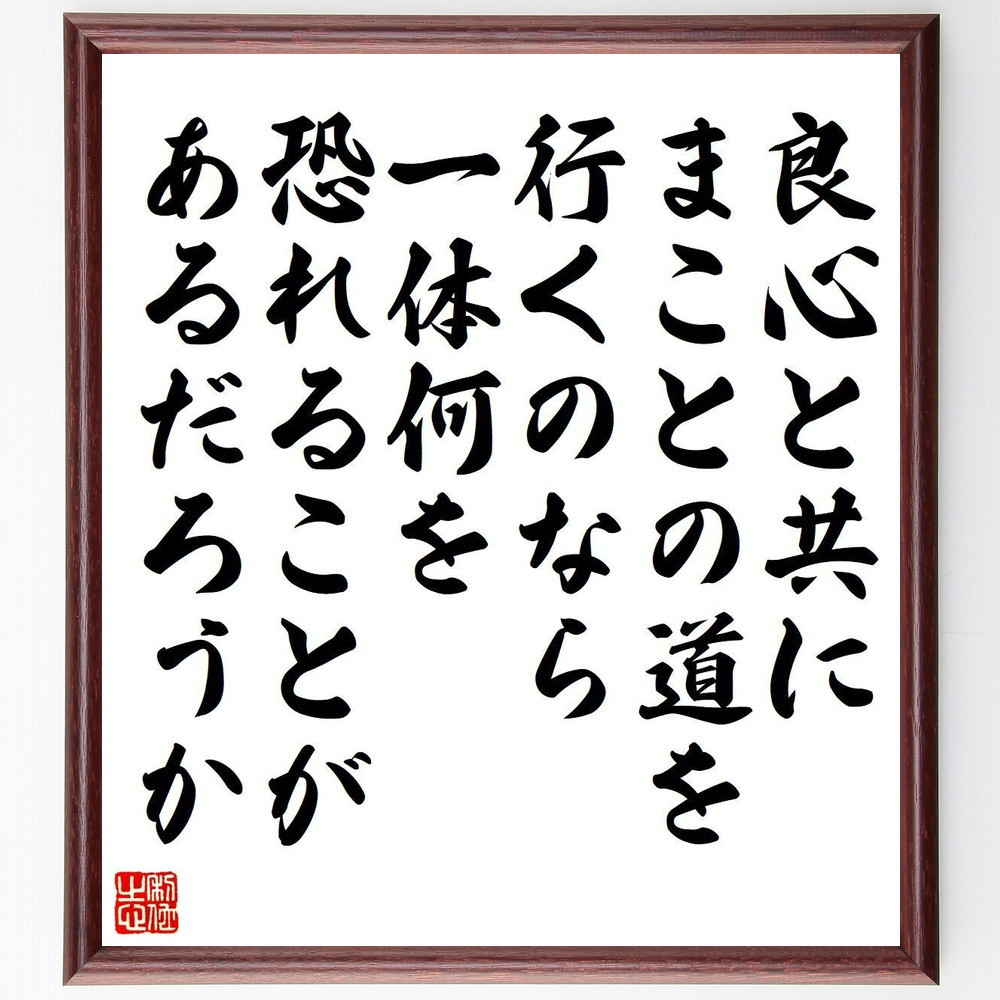 良心と共に
まことの道を
行くのなら
一体何を
恐れることが
あるだろうか